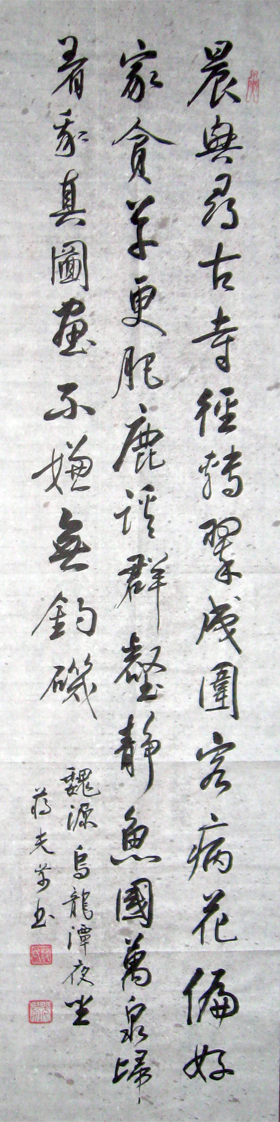 晨興尋古寺徑轉翠成圍客病花偏好
家貧草更肥鹿談群壑靜魚國萬泉歸
着我真圖畫不嫌無釣磯
魏源烏龍潭夜坐
蔣 书